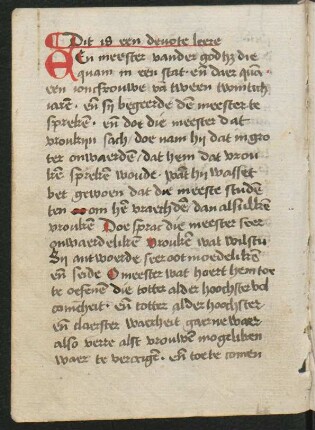 Dit is een deuote leere
Een meester vander godh3 die
quam in een stat · eñ daer quā
een ioncfrouwe vā tween twintich
iarē · eñ sy begeerde dē meester te
sprekē · eñ doe die meester dat
vroukijn sach / doe nam hij dat in gro
ter onwaerdē / dat hem dat vrou
kē sprekē woude · wāt hij wasset
bet gewoen dat die meeste studē
ten om hē vraechdē / dan alsulkē
vroukē Doe sprac die meester seer
onwaerdelikē vroukē wat wilstu
Sij antwoerde seer oetmoedelikē
eñ seide O meester wat hoert hem toe
te oefenē die totter alder hoochster vol
comēheit · eñ totter alder hoochster
eñ claerster waerheit gaerne waer
also verre alst vrouwē mogeliken
waer te vercrigē · eñ toe te comen